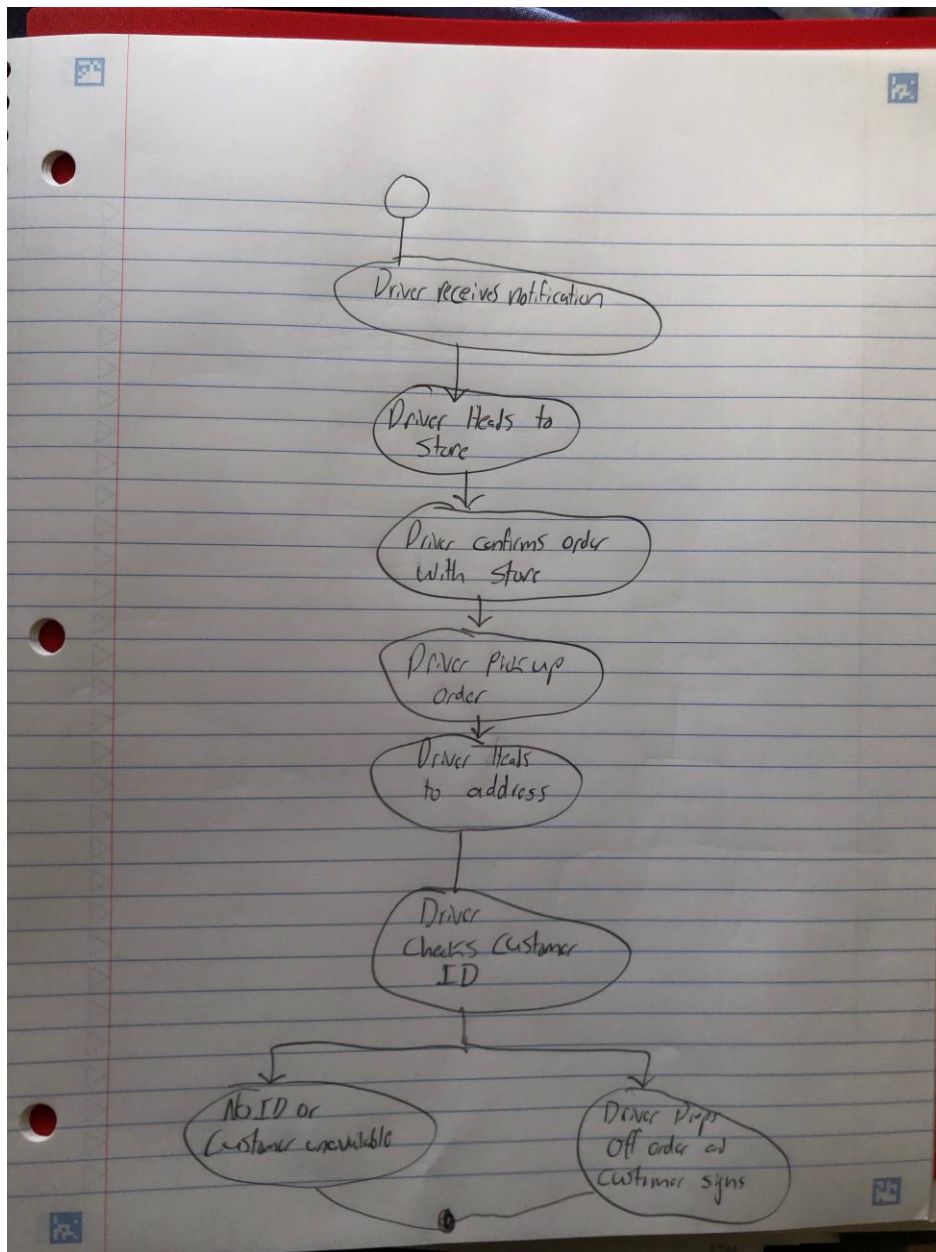 Driver receives notification
Driver Heads to
Store
Driver confirms order
with store
Driver Pick up
order
Driver Heads
to address
Driver
Checks Customer
ID
No ID or
Customer unavailable
Driver Drops
Off order ad
customer signs